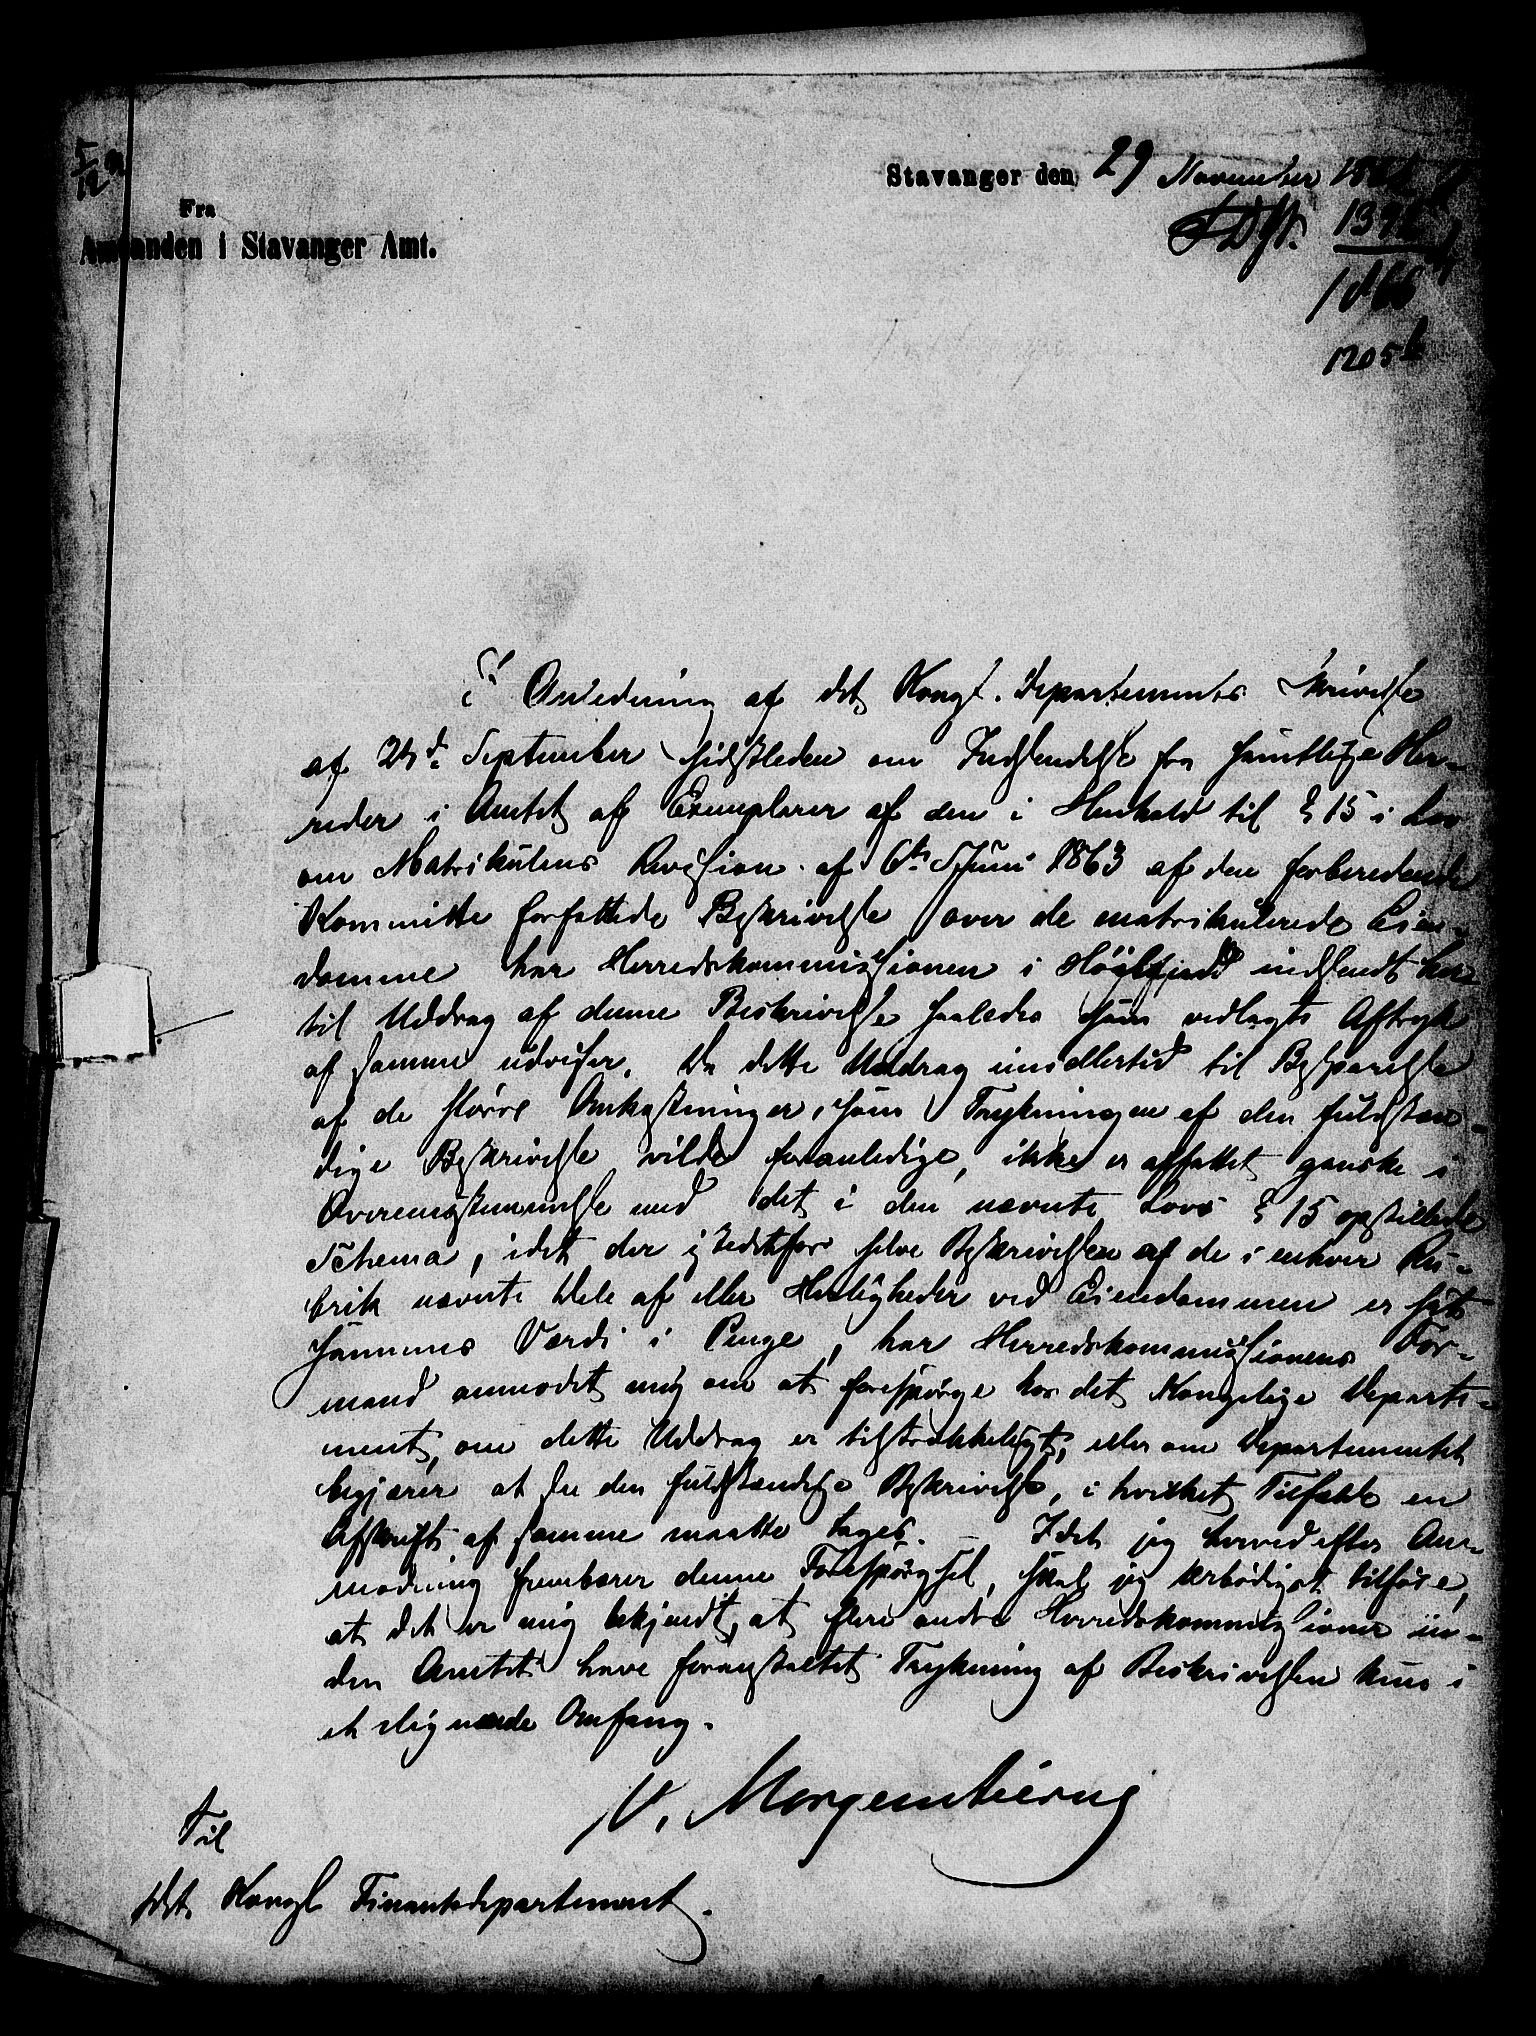 5/12
Stavanger den 29 November
Fra
Amtmanden i Stavanger Amt.
F. Dpt.
1866
1205
I Anledning af det Kongl. Departements Skrivelse
af 24d. September sidstleden om Indsendelse fra samtlige Her-
reder i Amtet af Exemplarer af den i Henhold til § 15 i Lov
om Matrikulens Revision af 6te Juni 1863 af den forberedende
Kommitte forfattede Beskrivelse over de matrikulerede Eien-
domme har Herredskommissionen i Høgsfjord indsendt her-
til Uddrag af denne Beskrivelse saaledes som vedlagte Aftryk
af samme udviser. Da dette Uddrag imidlertid til Besparelse
af de større Omkostninger, som Trykningen af den fuldstæn-
dige Beskrivelse vilde foranledige, ikke er affattet ganske i
Overensstemmelse med det i den nævnte Lovs § 15 opstillede
Schema, idet der istedetfor selve Beskrivelsen af de i enhver Ru-
brik nævnte Dele af eller Herligheder ved Eiendommen er sat
sammes Værdi i Penge, har Herredskommissionens For-
mand anmodet mig om at forespørge hos det Kongelige Departe-
ment, om dette Uddrag er tilstrækkeligt, eller om Departementet
begjærer at se den fuldstændige Beskrivelse, i hvilket Tilfælde en
Afskrift af samme maatte tages. – Idet jeg herved efter An-
modning frembærer denne Forespørgsel, skal jeg ærbødigst tilføie,
at det er mig bekjendt, at flere andre Herredskommissioner in-
den Amtet have foranstaltet Trykning af Beskrivelsen kun i
et lignende Omfang.
V. Morgenstierne
Til
det Kongl Finantsdepartement.